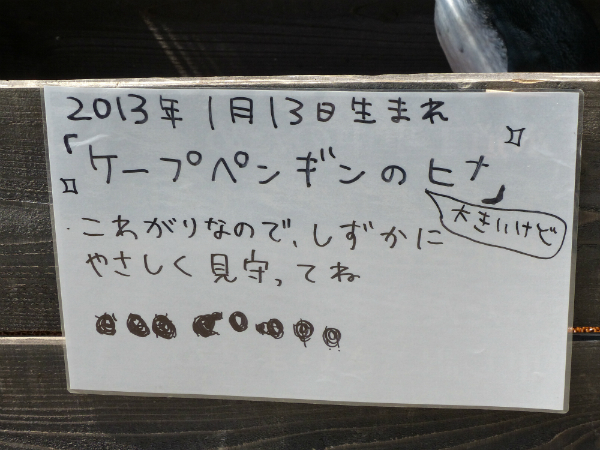 2013年1月13日生まれ
「ケープペンギンのヒナ」
大きいけど
こわがりなので、しずかに
やさしく見守ってね